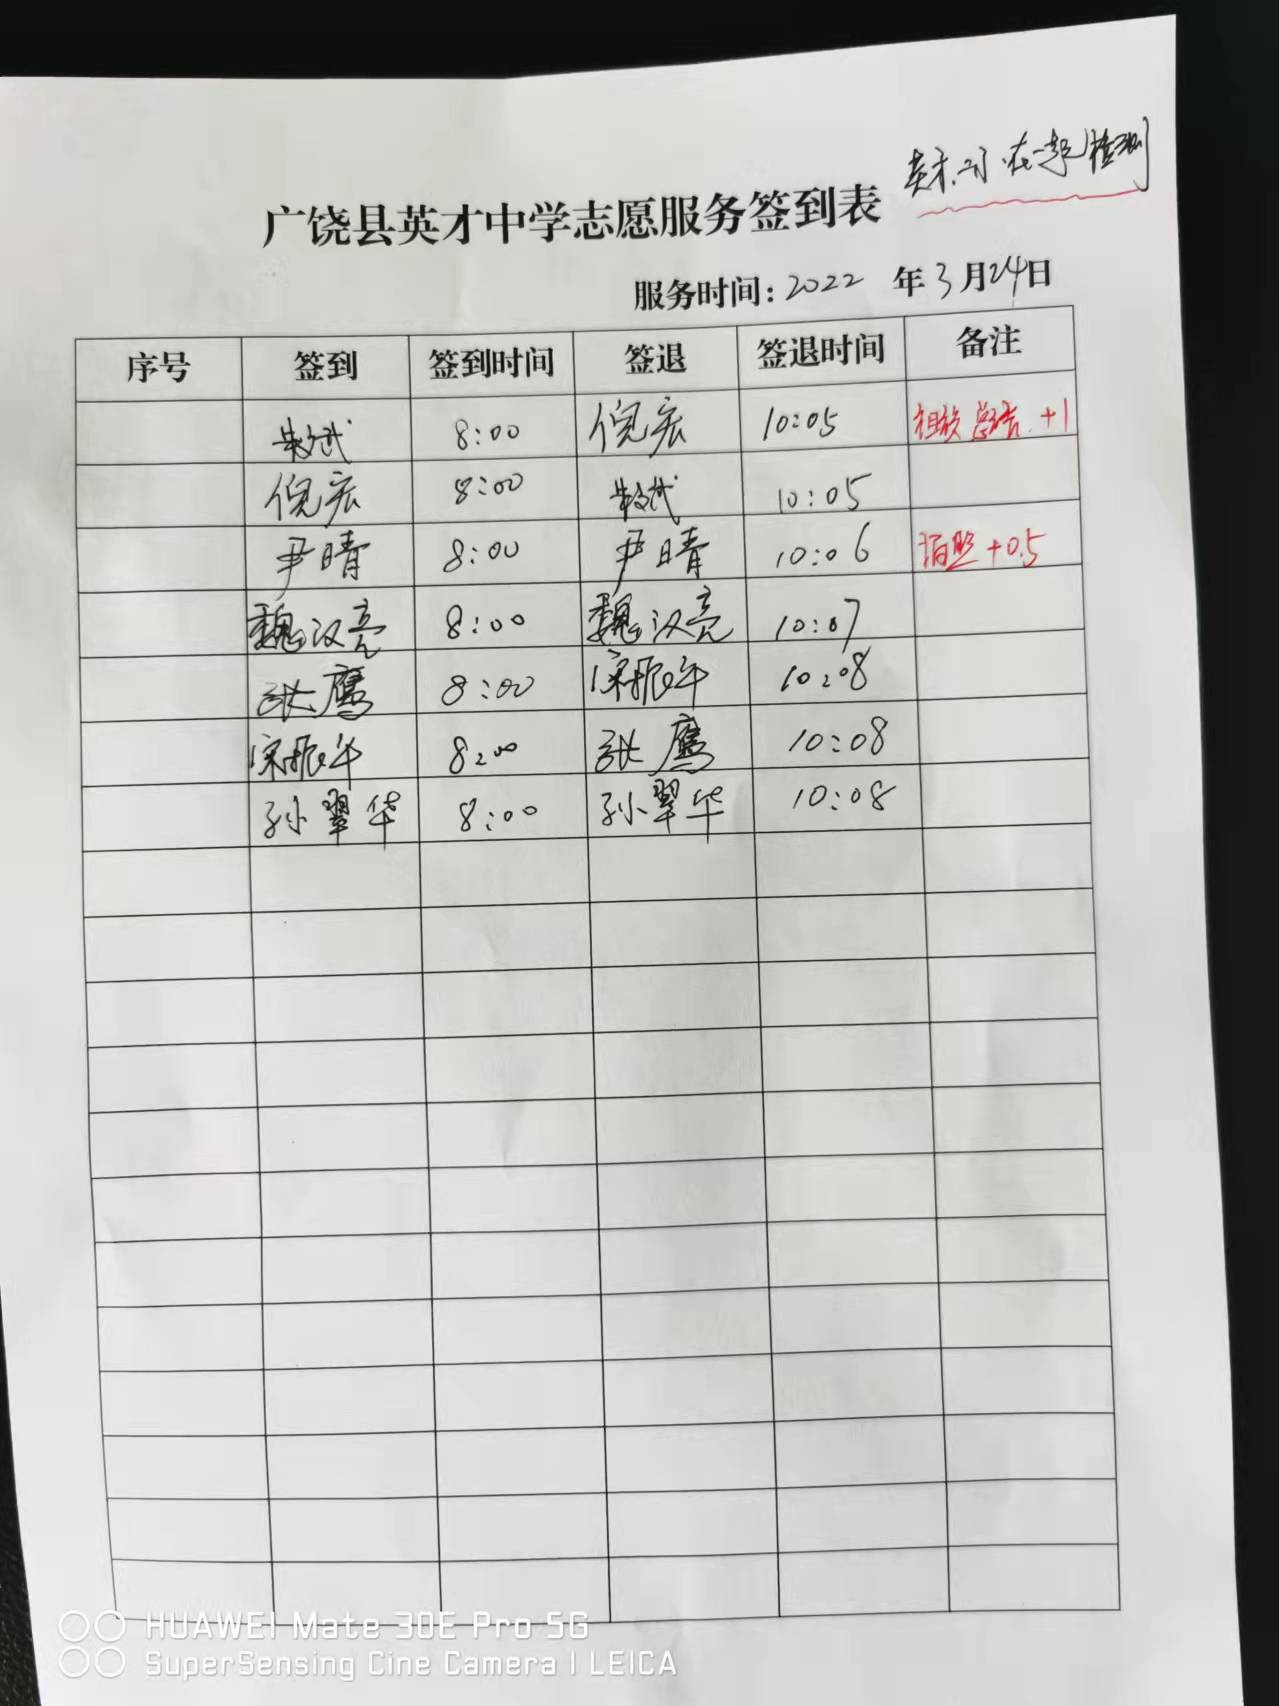 在一起检测
广饶县英才中学志愿服务签到表
服务时间：2022 年 3 月 24 日
序号 签到 签到时间 签退 签退时间 备注
8:00 倪宏 10:05 +1
倪宏 8:00 10:05
尹晴 8:00 尹晴 10:06 拍照 +0.5
魏汉亮 8:00 魏汉亮 10:07
张鹰 8:00 10:08
8:00 张鹰 10:08
孙翠华 8:00 孙翠华 10:08
HUAWEI Mate 30E Pro 5G
SuperSensing Cine Camera | LEICA